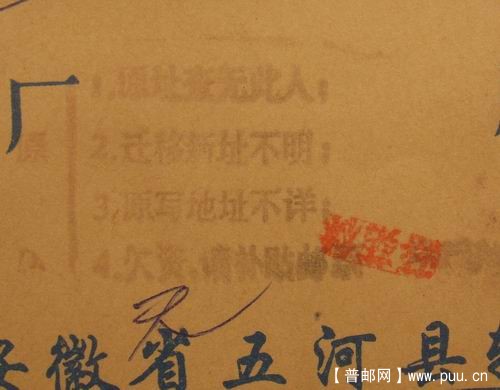 厂
原
1,原址查无此人；
2,迁移新址不明；
3,原写地址不详；
4.欠资,请补贴邮票
安徽省五河县
【普邮网】
www.puu.cn